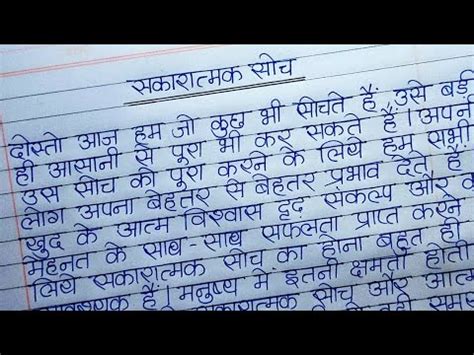 सकारात्मक सोच
दोस्तो आज हम जो कुछ भी सोचते हैं, उसे बड़ी
ही आसानी से पूरा भी कर सकते हैं। अपन
उस सोच को पूरा करने के लिये हम सभी
लोग अपना बेहतर से बेहतर प्रभाव देते हैं
खुद के आत्म विश्वास दृढ़ संकल्प और क
मेहनत के साथ-साथ सफलता प्राप्त करने
लिये सकारात्मक सोच का होना बहुत ही
हैं। मनुष्य में इतनी क्षमता होती
सोच और आत